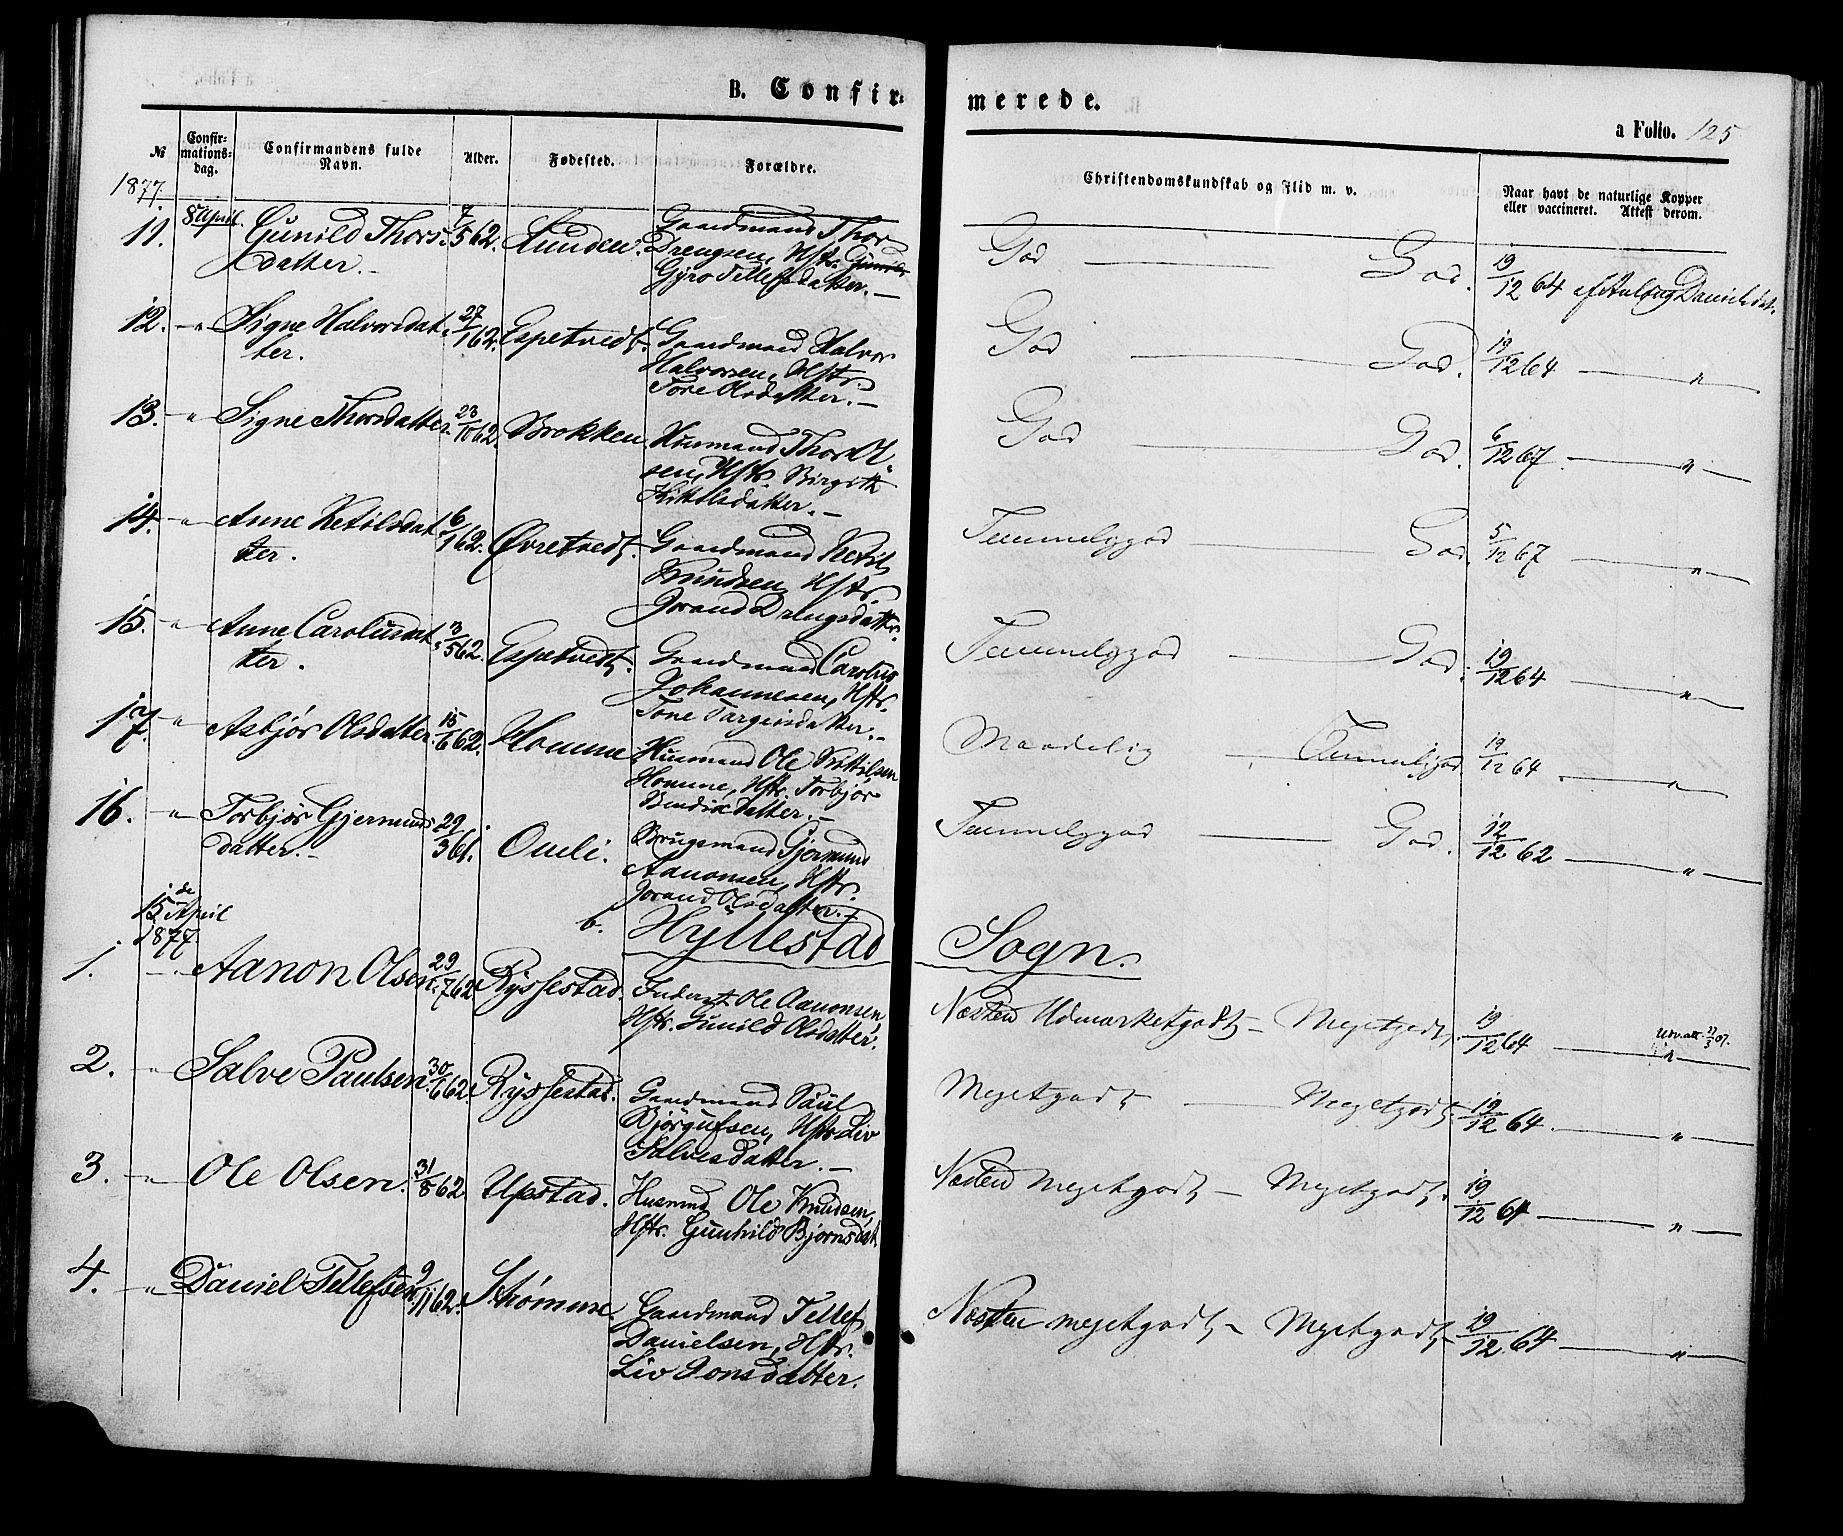 B. Confir-
merede.
a Folio. 125
№
Confir-
mations-
dag.
Confirmandens fulde
Navn.
Alder.
Fødested.
Forældre.
Christendomskundskab og Flid m. v.
Naar havt de naturlige Kopper
eller vaccineret. Attest derom.
1877.
11. 8de April. Gunild Thors- 7/5 62. Lunden. Gaardmand Thor
datter. Drengsen, Hstr.
Gyro Tellefsdatter.
God — God. 19/12 64 af Aslaug Danielsdat.
12. — " Signe Halvorsdat- 27/1 62. Espetvedt. Gaardmand Halvor
ter. Halvorsen, Hstr.
Tore Olsdatter. —
God — God. 19/12 64 — "
13. — " Signe Thorsdatter. 23/10 62. Brokken Huusmand Thor Ol-
sen, Hstr. Birgith
Kittilsdatter. —
God — God. 6/12 67. — "
14. — " Anne Ketilsdat- 6/1 62. Øvretvedt. Gaardmand Ketil
ter. Knudsen, Hstr.
Jorand Drengsdatter.
Temmeliggod — God. 5/12 67 — "
15. — " Anne Carolusdat- 3/5 62. Espetvedt. Gaardmand Carolus
ter. Johannesen, Hstr.
Tone Targeisdatter. —
Temmeliggod — God. 19/12 64 — "
17. — " Asbjør Olsdatter. 15/6 62. Homme Huusmand Ole Kittilsen
Homme, Hstr. Torbjør
Bendixdatter. —
Maadelig — Temmeliggod. 19/12 64. — "
16. — " Torbjør Gjermunds- 29/3 61. Omli. Brugsmand Gjermund
datter. — Aanonsen, Hstr.
Jorand Olsdatter. —
Temmeliggod — God. 12/12 62 — "
15de April
1877.
b. Hyllestad Sogn.
1. — " Aanon Olsen. 29/7 62 Ryssestad. Inderst Ole Aanonsen
Hstr. Gunild Olsdatter.
Næsten Udmærketgodt — Megetgodt. 19/12 64 — "
Udv. att. 22/3 07.
2. — " Salve Paulsen. 30/6 62. Ryssestad. Gaardmand Paul
Bjørgufsen, Hstr. Liv
Salvesdatter. —
Megetgodt — Megetgodt. 19/12 64. — "
3. — " Ole Olsen. 31/8 62 Upstad. Husmd Ole Knudsen,
Hstr. Gunhild Bjørnsdat.
Næsten Megetgodt — Megetgodt. 19/12 64 — "
4. — " Daniel Tellefsen 9/11 62. Strømme. Gaardmand Tellef
Danielsen, Hstr.
Liv Jonsdatter.
Næsten megetgodt — Megetgodt — 19/12 64 — "